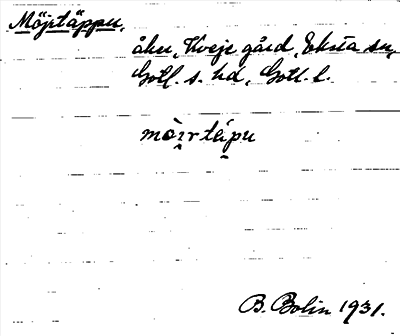 Möjrtäppu,
åker, Kveje gård, Eksta sn,
Gotl. s. hd, Gotl. l.
mòɪrtápu
B. Bolin 1931.